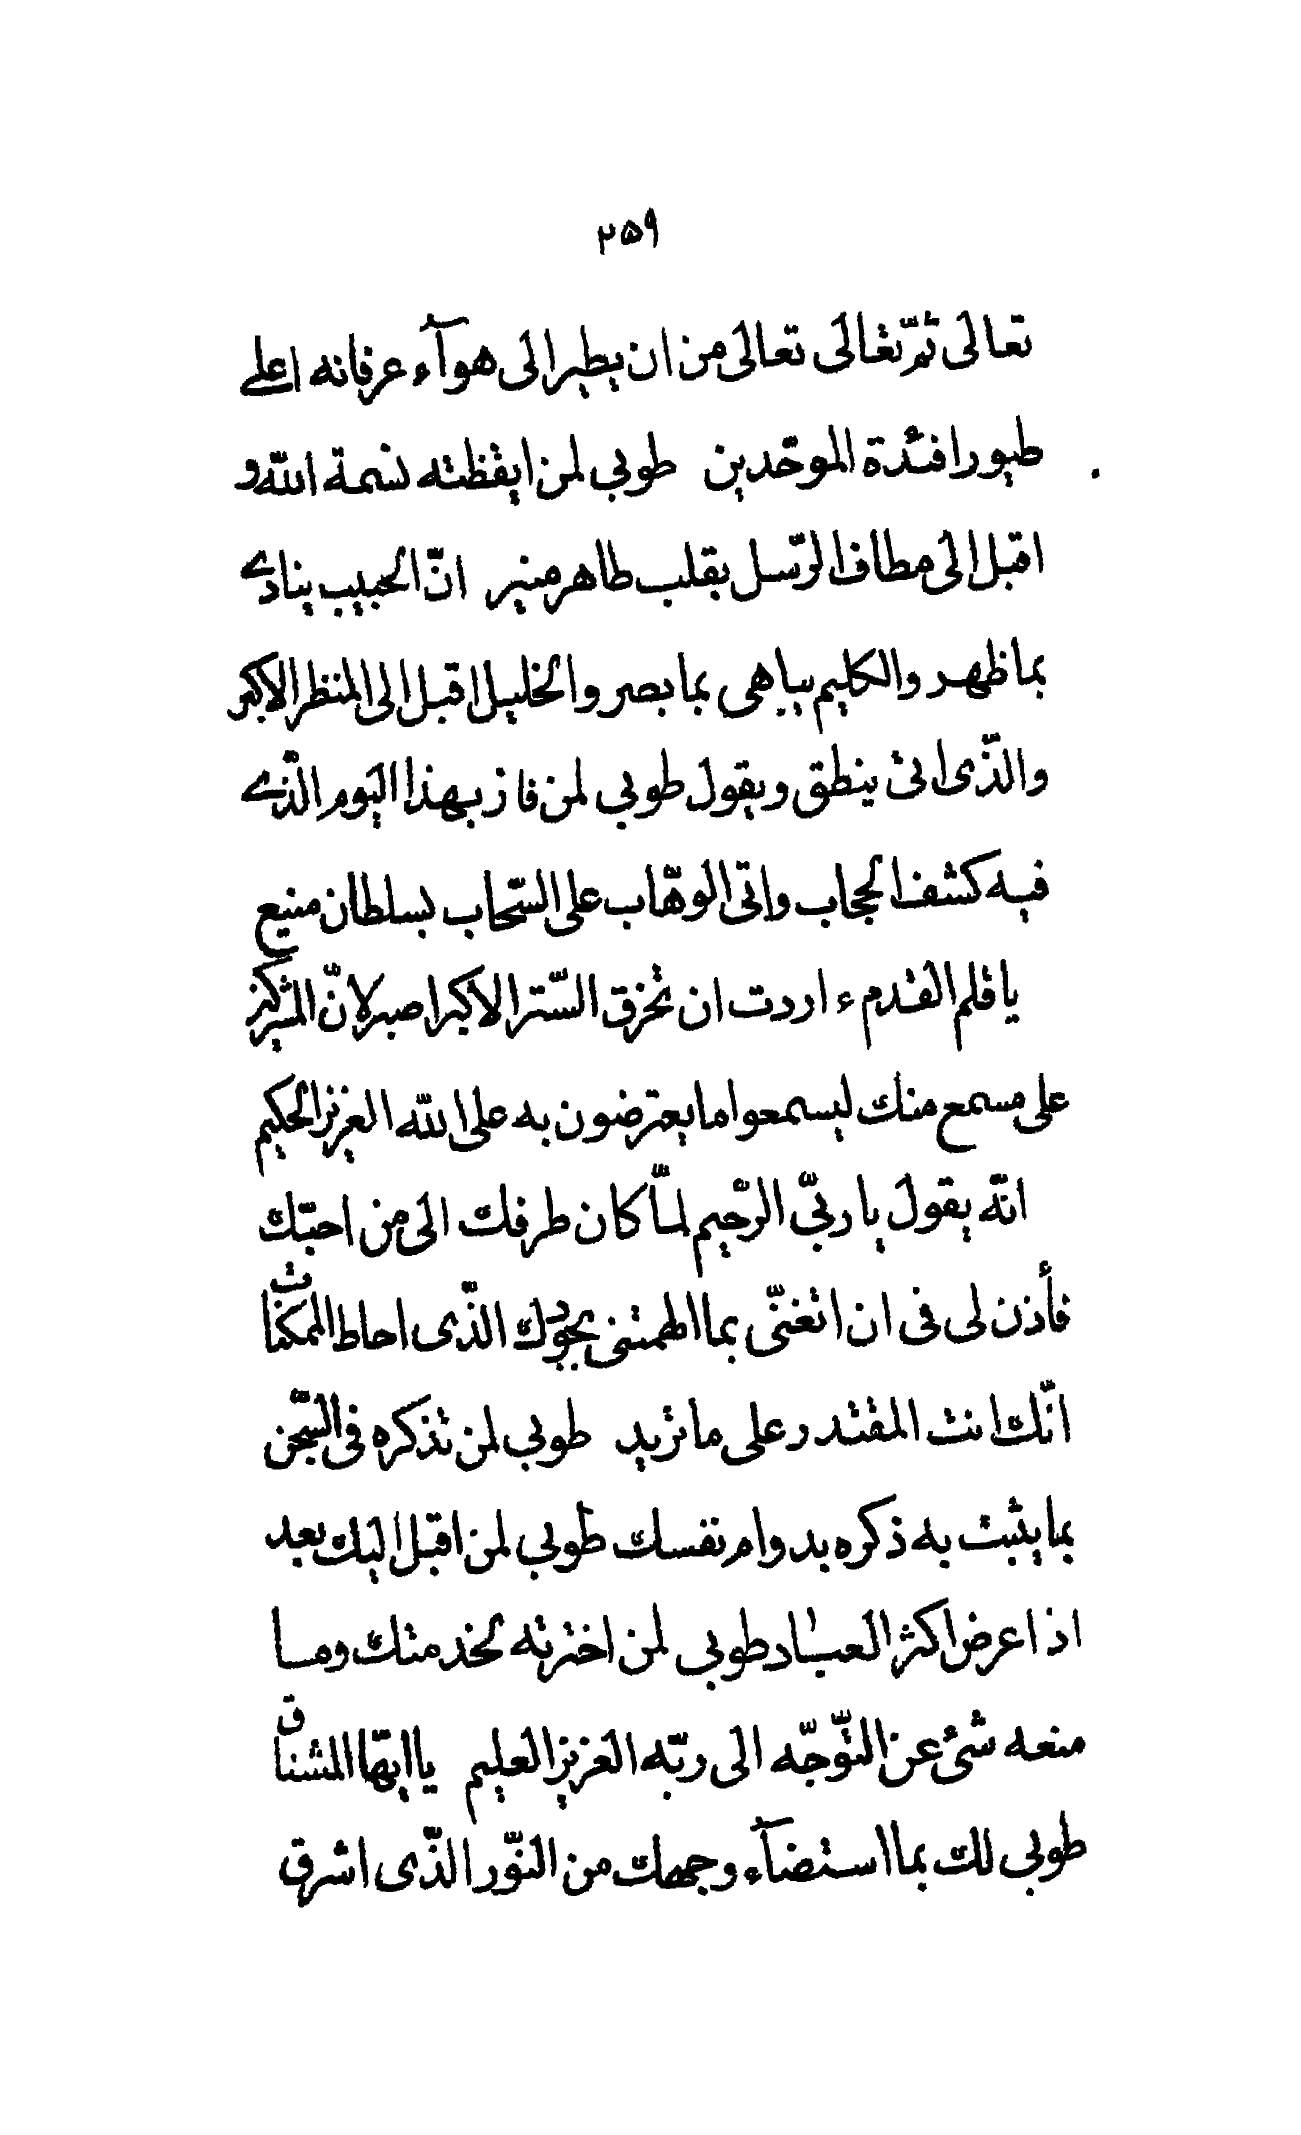 ٢٥٩
تعالى ثمّ تعالى تعالى من ان يطير الى هوآء عرفانه اعلى
طيور افئدة الموحّدين طوبى لمن ايقظته نسمة الله و
اقبل الى مطاف الرّسل بقلب طاهر منير انّ الحبيب ينادى
بما ظهر والكليم يباهى بما بصر والخليل اقبل الى المنظر الاكبر
والّذى اتى ينطق ويقول طوبى لمن فاز بهذا اليوم الّذى
فيه كشف الحجاب واتى الوهّاب على السّحاب بسلطان منيع
يا قلم القدم ء اردت ان تخرق السّتر الاكبر اصبر لانّ المشركين
على مسمع منك ليسمعوا ما يعترضون به على الله العزيز الحكيم
انّه يقول يا ربّى الرّحيم لمّا كان طرفك الى من احبّك
فأذن لى فى ان اتغنّى بما الهمتنى بجودك الّذى احاط الممكنات
انّك انت المقتدر على ما تريد طوبى لمن تذكره فى السّجن
بما يثبت به ذكره بدوام نفسك طوبى لمن اقبل اليك بعد
اذ اعرض اكثر العباد طوبى لمن اخترته لخدمتك وما
منعه شئ عن التّوجّه الى ربّه العزيز العليم يا ايّها المشتاق
طوبى لك بما استضآء وجهك من النّور الّذى اشرق